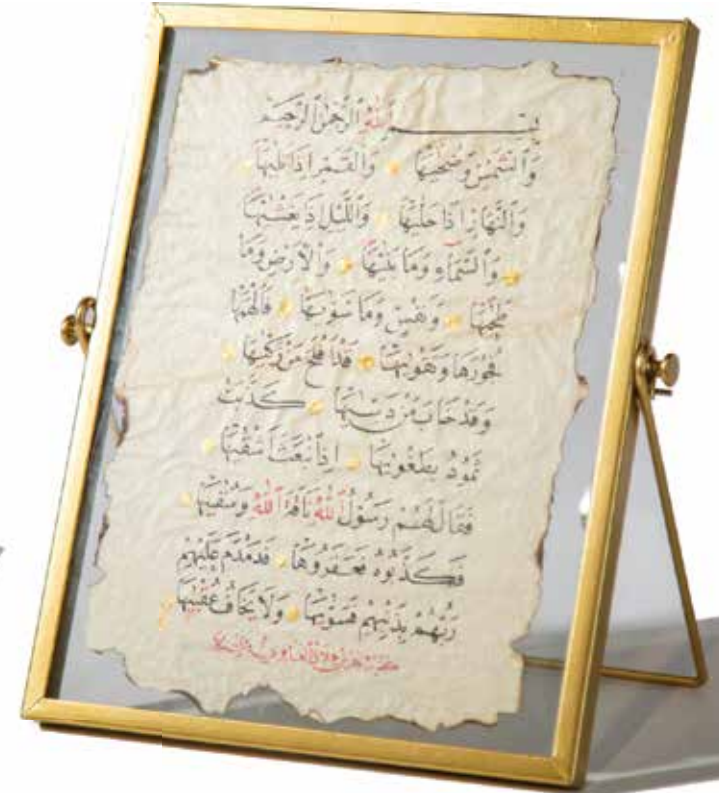 بِسْمِ ٱللَّهِ ٱلرَّحْمَٰنِ ٱلرَّحِيمِ
وَٱلشَّمْسِ وَضُحَىٰهَا وَٱلْقَمَرِ إِذَا تَلَىٰهَا
وَٱلنَّهَارِ إِذَا جَلَّىٰهَا وَٱللَّيْلِ إِذَا يَغْشَىٰهَا
وَٱلسَّمَآءِ وَمَا بَنَىٰهَا وَٱلْأَرْضِ وَمَا
طَحَىٰهَا وَنَفْسٍ وَمَا سَوَّىٰهَا فَأَلْهَمَهَا
فُجُورَهَا وَتَقْوَىٰهَا قَدْ أَفْلَحَ مَن زَكَّىٰهَا
وَقَدْ خَابَ مَن دَسَّىٰهَا كَذَّبَتْ
ثَمُودُ بِطَغْوَىٰهَا إِذِ ٱنۢبَعَثَ أَشْقَىٰهَا
فَقَالَ لَهُمْ رَسُولُ ٱللَّهِ نَاقَةَ ٱللَّهِ وَسُقْيَٰهَا
فَكَذَّبُوهُ فَعَقَرُوهَا فَدَمْدَمَ عَلَيْهِمْ
رَبُّهُم بِذَنۢبِهِمْ فَسَوَّىٰهَا وَلَا يَخَافُ عُقْبَٰهَا